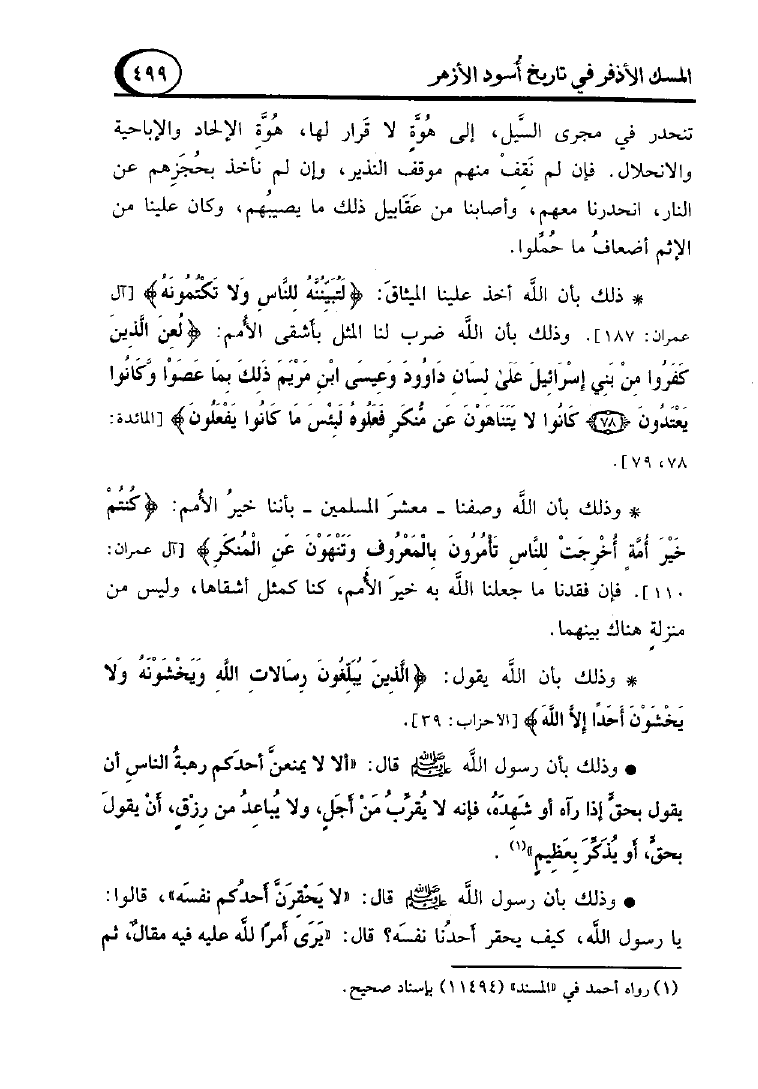 المسك الأذفر في تاريخ أسود الأزهر
٤٩٩
تنحدر في مجرى السَّيل، إلى هُوَّةٍ لا قَرار لها، هُوَّةِ الإلحاد والإباحية
والانحلال. فإن لم نَقِفْ منهم موقف النذير، وإن لم نأخذ بحُجَزِهم عن
النار، انحدرنا معهم، وأصابنا من عَقَابيل ذلك ما يصيبُهم، وكان علينا من
الإثم أضعافُ ما حُمِّلوا.
* ذلك بأن اللَّه أخذ علينا الميثاقَ: ﴿لَتُبَيِّنُنَّهُ لِلنَّاسِ وَلا تَكْتُمُونَهُ﴾ [آل
عمران: ١٨٧]. وذلك بأن اللَّه ضرب لنا المثل بأشقى الأُمم: ﴿لُعِنَ الَّذِينَ
كَفَرُوا مِنْ بَنِي إِسْرَائِيلَ عَلَىٰ لِسَانِ دَاوُودَ وَعِيسَى ابْنِ مَرْيَمَ ذَلِكَ بِمَا عَصَوْا وَّكَانُوا
يَعْتَدُونَ ﴿٧٨﴾ كَانُوا لا يَتَنَاهَوْنَ عَن مُّنكَرٍ فَعَلُوهُ لَبِئْسَ مَا كَانُوا يَفْعَلُونَ﴾ [المائدة:
٧٨، ٧٩].
* وذلك بأن اللَّه وصفنا ـ معشرَ المسلمين ـ بأننا خيرُ الأُمم: ﴿كُنتُمْ
خَيْرَ أُمَّةٍ أُخْرِجَتْ لِلنَّاسِ تَأْمُرُونَ بِالْمَعْرُوفِ وَتَنْهَوْنَ عَنِ الْمُنكَرِ﴾ [آل عمران:
١١٠]. فإن فقدنا ما جعلنا اللَّه به خيرَ الأُمم، كنا كمثل أشقاها، وليس من
منزلةٍ هناك بينهما.
* وذلك بأن اللَّه يقول: ﴿الَّذِينَ يُبَلِّغُونَ رِسَالاتِ اللَّهِ وَيَخْشَوْنَهُ وَلا
يَخْشَوْنَ أَحَدًا إِلاَّ اللَّهَ﴾ [الأحزاب: ٣٩].
● وذلك بأن رسول اللَّه ﷺ قال: «ألا لا يمنعنَّ أحدَكم رهبةُ الناسِ أن
يقول بحقٍّ إذا رآه أو شَهِدَهُ، فإنه لا يُقرِّبُ مَنْ أَجَلٍ، ولا يُباعِدُ من رِزْقٍ، أَنْ يقولَ
بحقٍّ، أو يُذكِّرَ بِعَظِيمٍ»(١) .
● وذلك بأن رسول اللَّه ﷺ قال: «لا يَحْقِرَنَّ أحدُكم نفسَه»، قالوا:
يا رسول اللَّه، كيف يحقر أحدُنا نفسَه؟ قال: «يَرَى أمرًا للَّه عليه فيه مقالٌ، ثم
(١) رواه أحمد في «المسند» (١١٤٩٤) بإسناد صحيح.